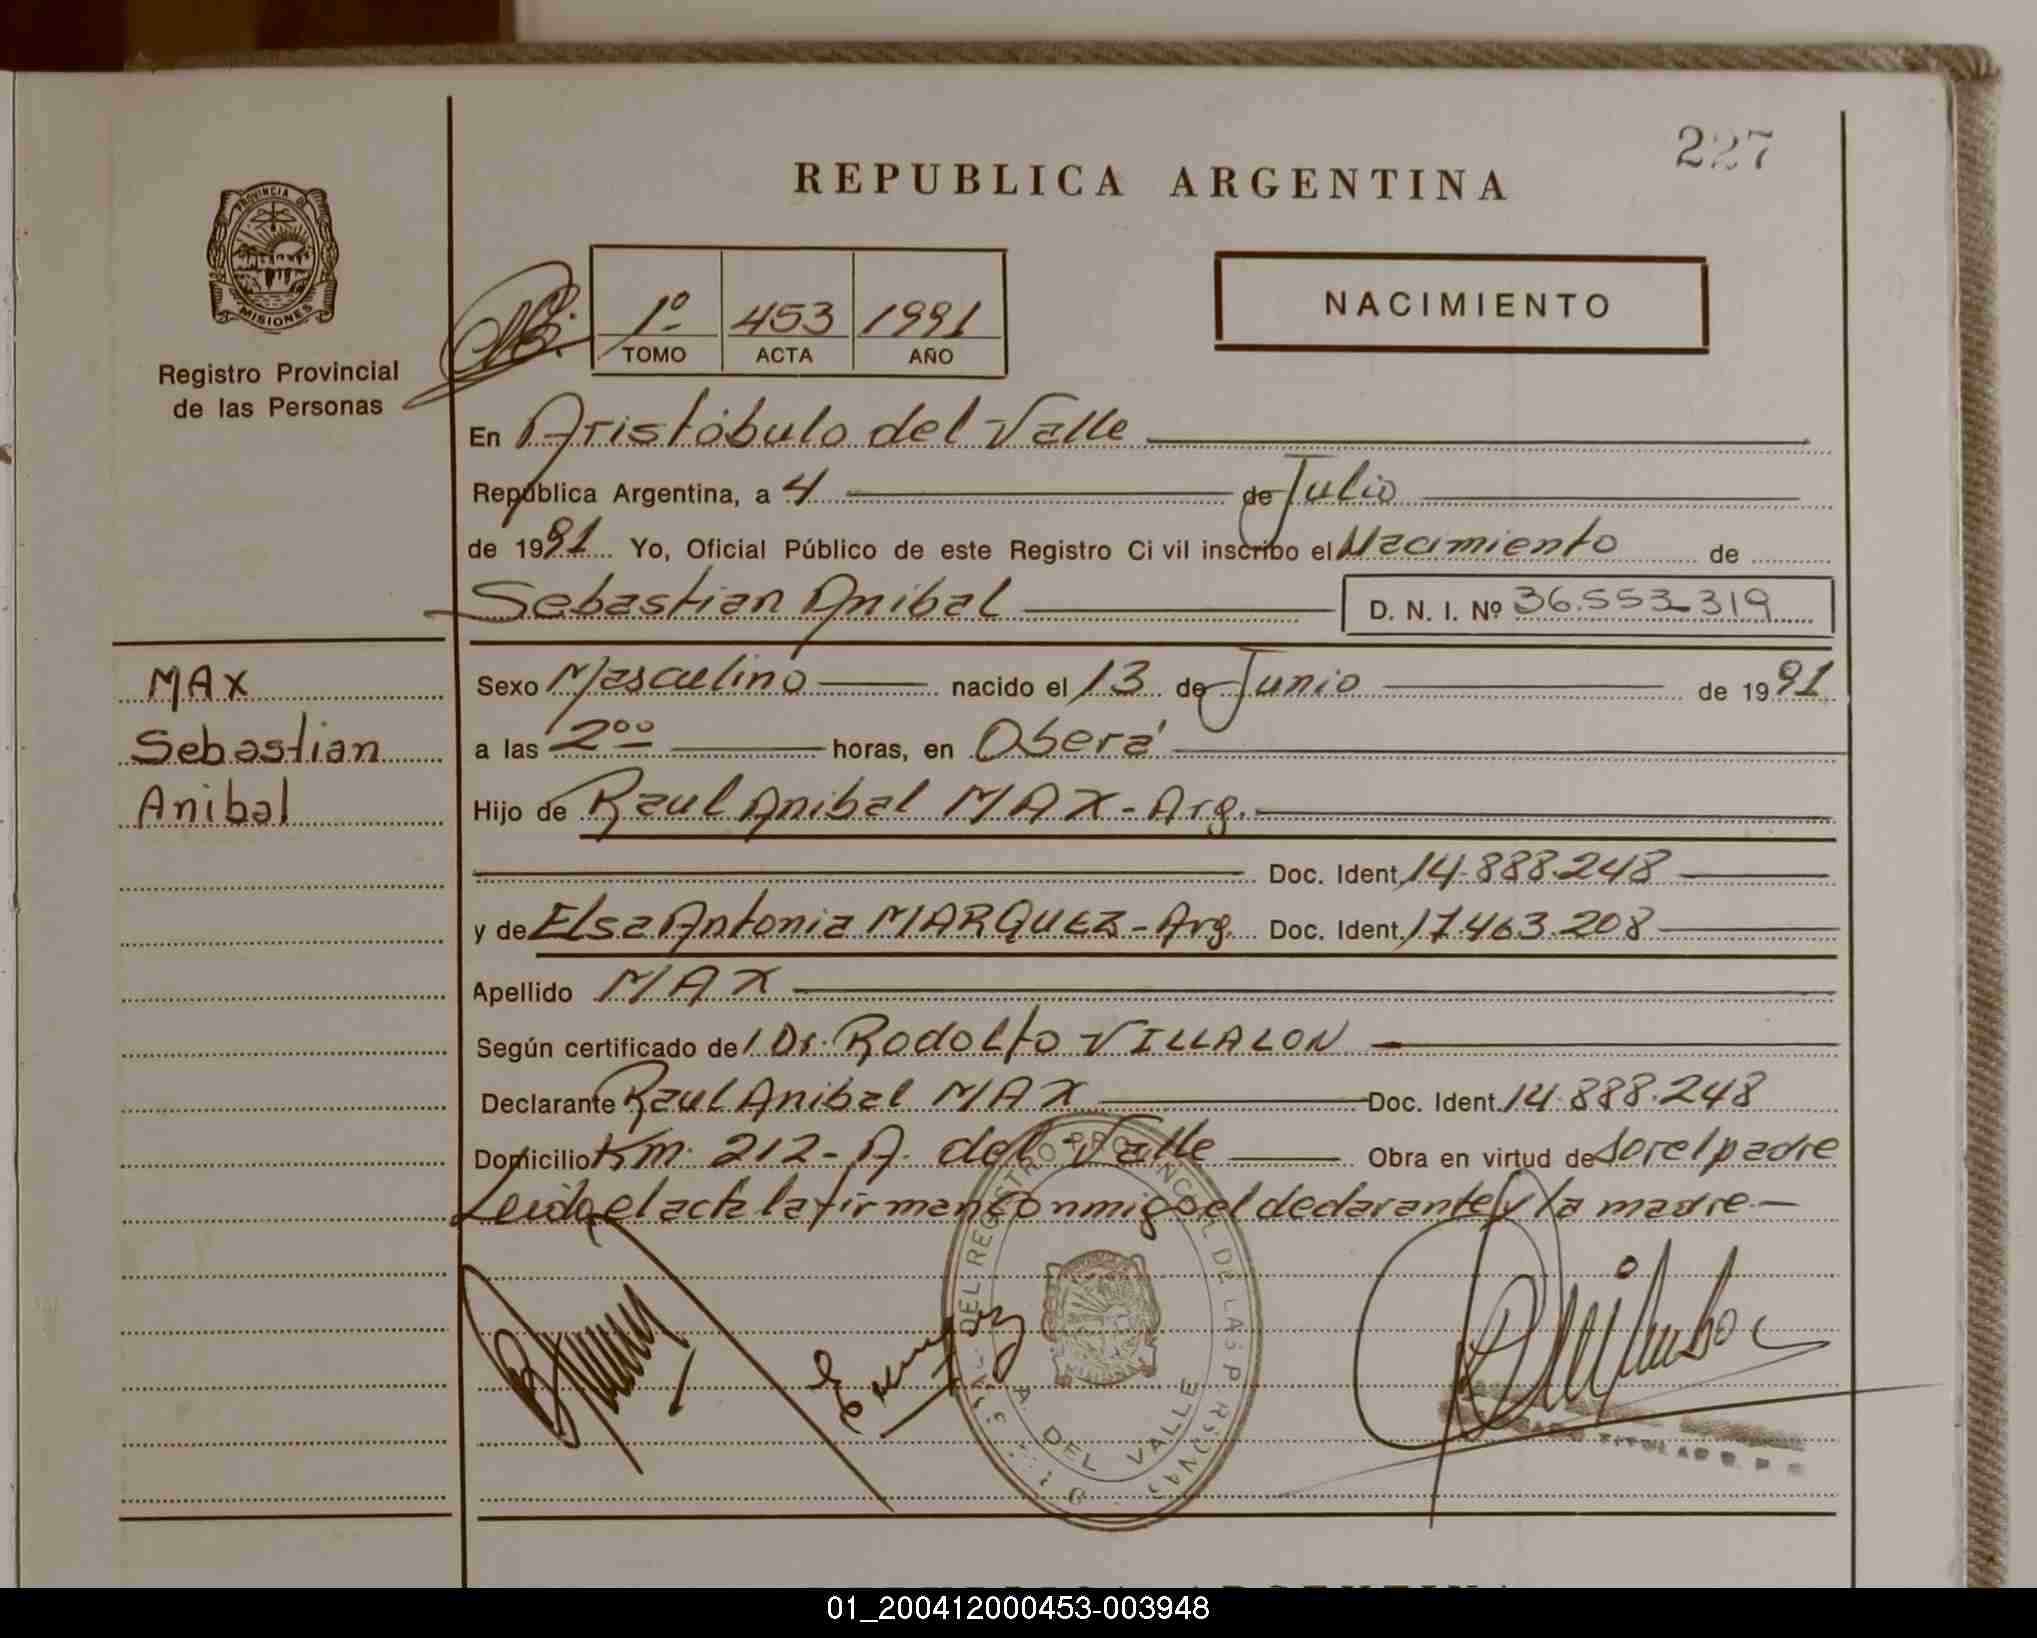 227
REPUBLICA ARGENTINA
PROVINCIA DE
MISIONES
Registro Provincial
de las Personas
1º 453 1991
TOMO ACTA AÑO
NACIMIENTO
En Aristóbulo del Valle
República Argentina, a 4 de Julio
de 1991 Yo, Oficial Público de este Registro Ci vil inscribo el Nacimiento de
Sebastian Anibal D. N. I. Nº 36.553.319
MAX
Sebastian
Anibal
Sexo Masculino nacido el 13 de Junio de 1991
a las 2ºº horas, en Oberá
Hijo de Raul Anibal MAX - Arg.
Doc. Ident. 14.888.248
y de Elsa Antonia MARQUEZ - Arg. Doc. Ident. 17.463.208
Apellido MAX
Según certificado de Dr. Rodolfo VILLALON
Declarante Raul Anibal MAX Doc. Ident. 14.888.248
Domicilio Km. 212 - A. del Valle Obra en virtud de ser el padre
Leida el acta la firman conmigo el declarante y la madre
DEL REGISTRO PROVINCIAL DE LAS PERSONAS
A. DEL VALLE
TITULAR R. P.
01_200412000453-003948